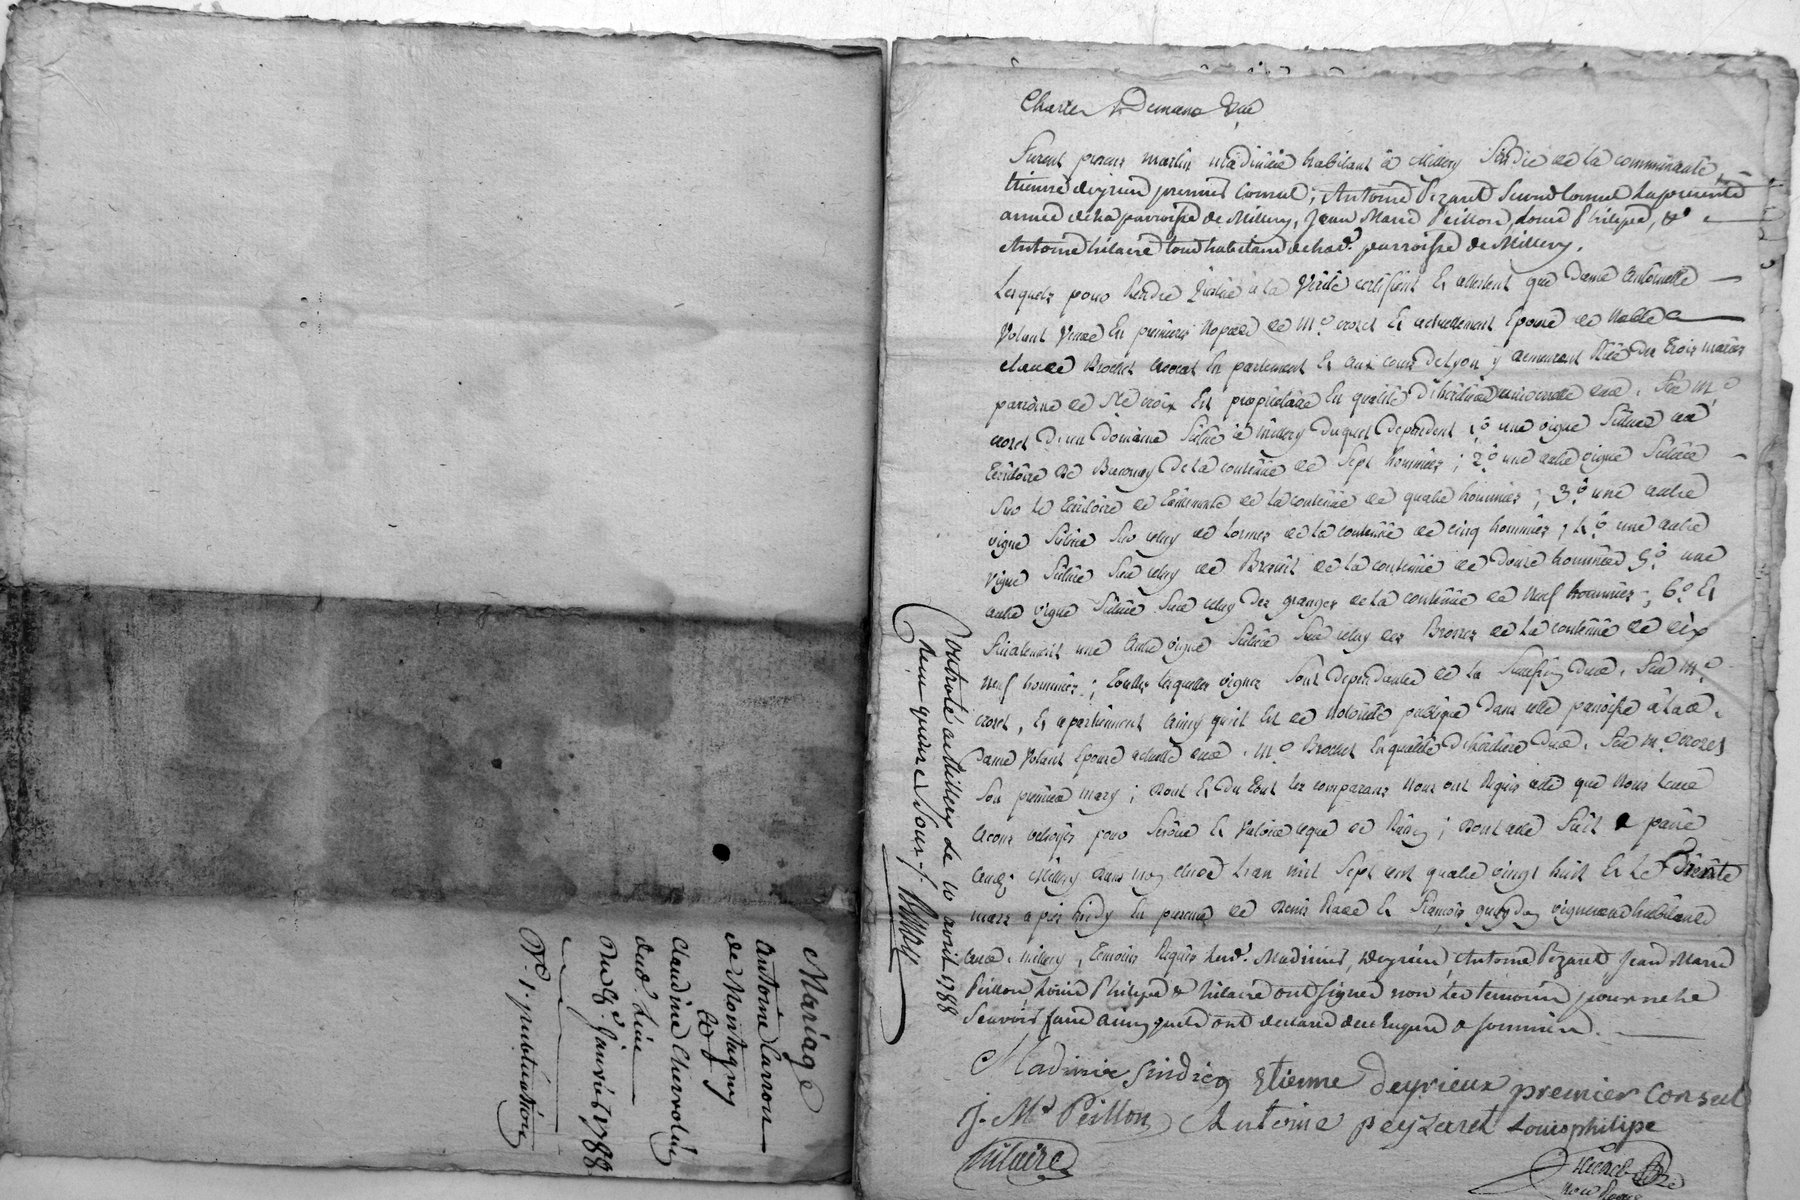 Mariage
Antoine Carron
de Montagny
&
Claudine Chervolin
dud. lieu
Du 8e. Janvier 1788
Pr. 1. publication
Controlé a Millery le 10 avril 1788
Reçu quinze sous
Furent presens martin madinié habitant à Millery sindic de la communauté,
Etienne deyrieu premier Consul, Antoine Pezaret Second Consul la presente
année de la parroisse de Millery, Jean Marie Peillon, Louis Philipe, &
Antoine hilaire tous habitans de lad. parroisse de Millery.
Lesquels pour Rendre Justice à la Verité certifient Et attestent que dame antoinette
Volant Veuve En premieres Nopces de Me. crozet Et actuellement Epouse de Noble
claude Brochet avocat En parlement Et aux cours de Lyon y demeurant Rüe des trois maries
paroisse de Ste croix Est propriétaire En qualité d'héritiere universelle dud. feu Me.
crozet d'un domaine Situé à millery duquel dependent 1.° une vigne Situee au
territoire de de la contenüe de Sept hommées ; 2.° une autre vigne Située
Sur le territoire de de la contenüe de quatre hommées ; 3.° une autre
vigne Située Sur celuy de de la contenüe de cinq hommées ; 4.° une autre
vigne Située Sur celuy de de la contenüe de douze hommées 5.° une
autre vigne Située Sur celuy des granges de la contenüe de Neuf hommées ; 6.° Et
finalement une autre vigne Située Sur celuy des Brosses de la contenüe de dix
neuf hommées ; toutes lesquelles vignes Sont dependantes de la dud. feu Me.
crozet, Et apartiennent ainsy qu'il Est de Notoriété publique dans cette paroisse à lad.
Dame Volant Epouse actuelle dud. Me. Brochet En qualité d'héritiere dud. feu Me. crozet
Son premier mary ; dont Et du tout les comparans Nous ont Requis acte que Nous leur
avons octroyé pour Servir Et Valoir ce que de Raison ; dont acte fait & passé
aud. Millery dans mon etude L'an mil Sept cent quatre vingt huit Et Le trente
mars après midy En presence de denis Et François vignerons habitants
aud. millery, temoins Requis lesd. Madinier, deyrieu, Antoine Pezaret, Jean Marie
Peillon, Louis Philipe & hilaire ont signés non les temoins pour ne le
Scavoir faire ainsy qu'ils ont declaré de ce Enquis & sommés.
Madinié sindicq Etienne deyrieux premier consul
J. Me Peillon Antoine peyzaret Louis philipe
hilaire